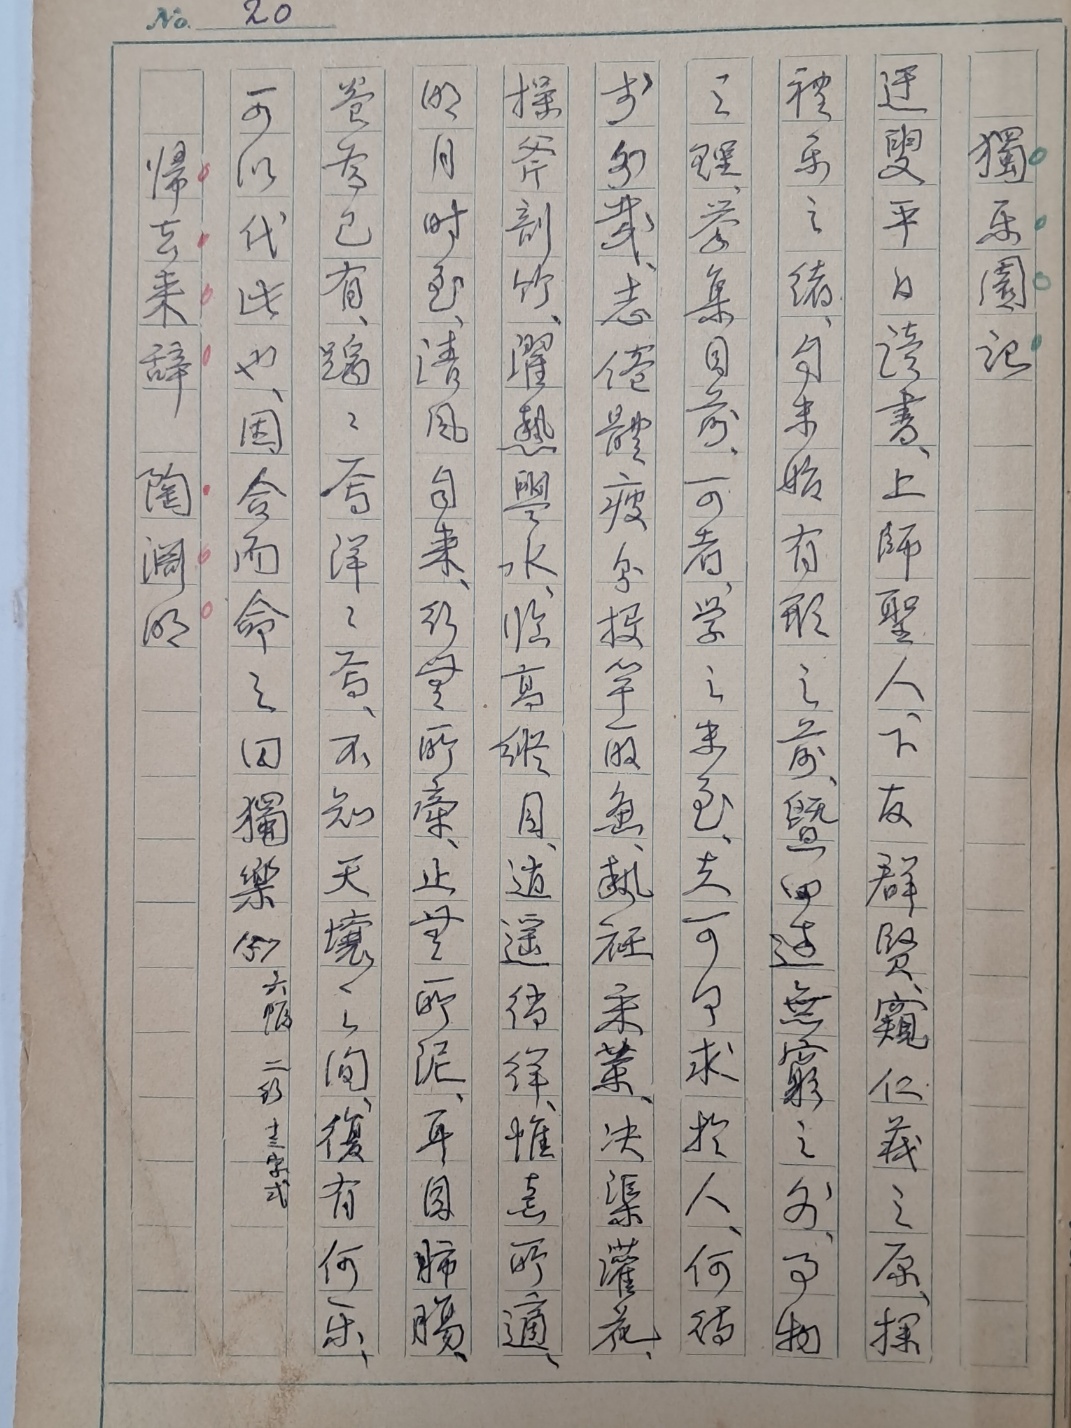 No. 20
獨乐園记
迂叟平日读書、上師聖人、下友群賢、窺仁義之原、探
禮乐之緒、自未始有形之前、暨四达無窮之外、事物
之理、举集目前、可者、学之未至、夫可何求於人、何待
於外哉、志倦體疲、則投竿取鱼、執衽采葉、决渠灌花、
操斧剖竹、濯熱盥水、临高縱目、逍遥徜徉、惟意所適、
明月时至、清风自来、行無所牽、止無所泥、耳目肺腸、
卷为己有、踽々焉洋々焉、不知天壤之间、復有何乐、
可以代此也、因合而命之曰獨樂
六幅 二行 十三字式
帰去来辞 陶渊明